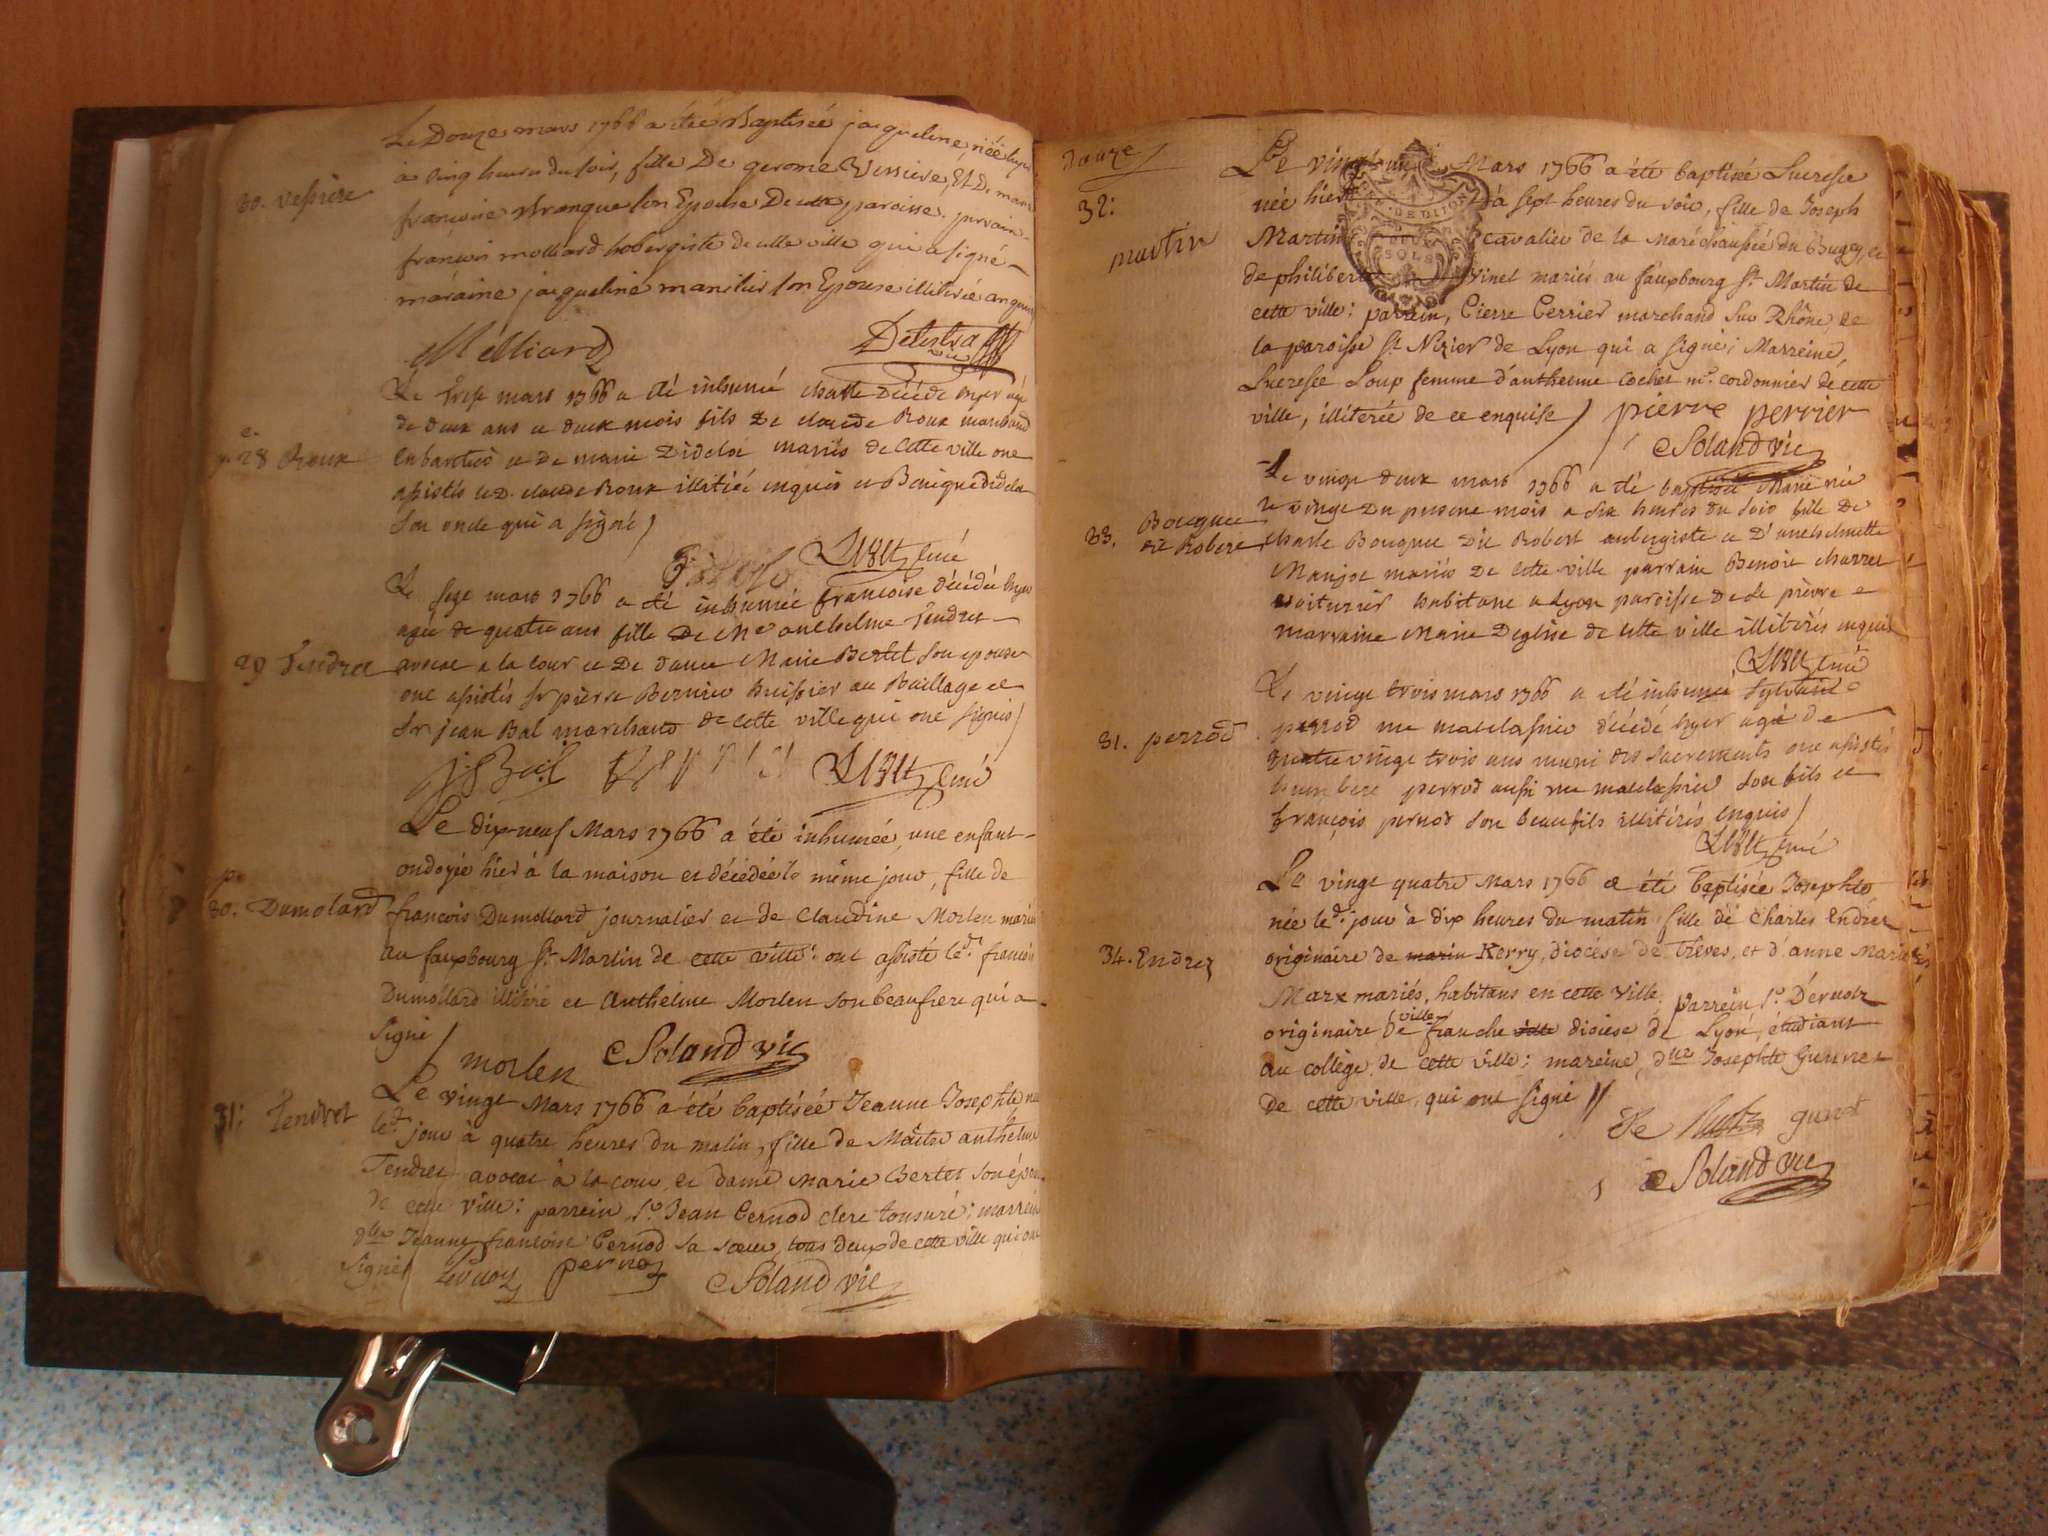 Le Douze mars 1766 a été Baptisée jacqueline, née
à cinq heures du soir, fille De gerome Vessiere, Et De marie
30. vessiere
françoise son Epouse De cette paroisse. parrain
françois molliard hobergiste de cette ville qui a signé
maraine jacqueline son Epouse illiterée
Molliard
Le mars 1766 a été inhumé charle Décédé hyer agé
de deux ans et deux mois fils De claude Roux marchand
28 Roux
et De marie Didelot mariés de Cette ville ont
assistés led. claude Roux illitiré enquis et
son oncle qui a signé /
curé
Le seze mars 1766 a été inhumée françoise décédée hyer
agée de quatre ans fille De Me anthelme Tendret
29 Tendret
avocat a la cour et De dame Marie Bertet son epouse
ont assistés sr pierre Bernieu huissier au Baillage et
Sr jean Bal marchand de cette ville qui ont signés /
curé
Le dix-neuf Mars 1766 a été inhumée, une enfant
ondoyée hier à la maison et décédée le même jour, fille de
30. Dumolard
françois Dumollard journalier et de Claudine Morlen mariés
au fauxbourg St. Martin de cette ville: ont assisté led. françois
Dumollard illitéré et Anthelme Morlen son beaufrere qui a
signé /
morlen Soland vic
Le vingt Mars 1766 a été baptisée Jeanne Josephte née
31: Tendret
led. jour à quatre heures du matin, fille de Maître anthelme
Tendret avocat à la cour, et dame Marie Bertet son épouse
de cette ville: parrein, Sr. Jean Pernod clerc tonsuré; marreine
dlle Jeanne françoise Pernod sa sœur, tous deux de cette ville qui ont
signé /
pernod Soland vic
douze
Le vingt un Mars 1766 a été baptisée Lucresse
32:
née hier à sept heures du soir, fille de Joseph
martin
Martin cavalier de la Maréchaussée du Bugey, et
de philiberte Vinet mariés au fauxbourg St. Martin de
DE DIJON
SOLS
cette ville: parrein, Pierre Perrier marchand sur Rhône, de
la paroisse St. Nizier de Lyon qui a signé; Marreine,
Lucresse Loup femme d'anthelme Cochet me. cordonnier de cette
ville, illiterée de ce enquise / pierre perrier
Soland vic
Le vingt deux mars 1766 a été baptisée Marie née
le vingt du present mois a six heures du soir fille de
33. Bouquet dit Robert
charle Bouquet dit Robert aubergiste et
mariés De cette ville parrain Benoit charret
voiturier habitant a Lyon paroisse De St pierre et
marraine Marie Deglise de cette ville illiterés enquis
curé
Le vingt trois mars 1766 a été inhumé Sylvain
31. perrod
perrod me matelassier décédé hyer agé de
quatre vingt trois ans muni des sacrements ont assistés
humbert perrod aussi me matelassier son fils et
françois pernod son beau fils illitérés enquis /
curé
Le vingt quatre Mars 1766 a été baptisée Josephte
née led. jour à dix heures du matin fille de Charles Endrez
34. Endrez
originaire de marin Kerry, diocése de Trêves, et d'anne Marie
Marx mariés, habitans en cette ville; parrein, Sr.
originaire de ville franche ville diocèse de Lyon, étudiant
au collège de cette ville; mareine, dlle Josephte
de cette ville, qui ont signé //
Soland vic